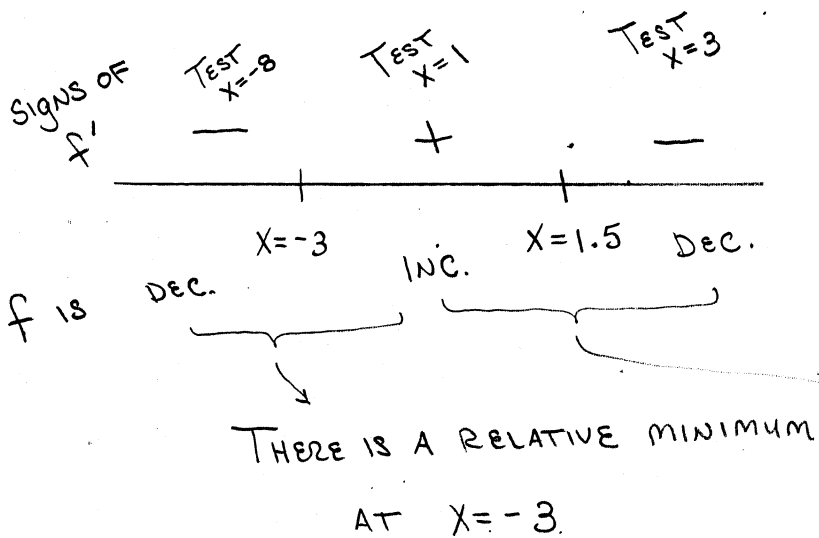 SIGNS OF f'
TEST X=-8
TEST X=1
TEST X=3
— + —
X=-3 X=1.5
f IS DEC. INC. DEC.
THERE IS A RELATIVE MINIMUM
AT X=-3.